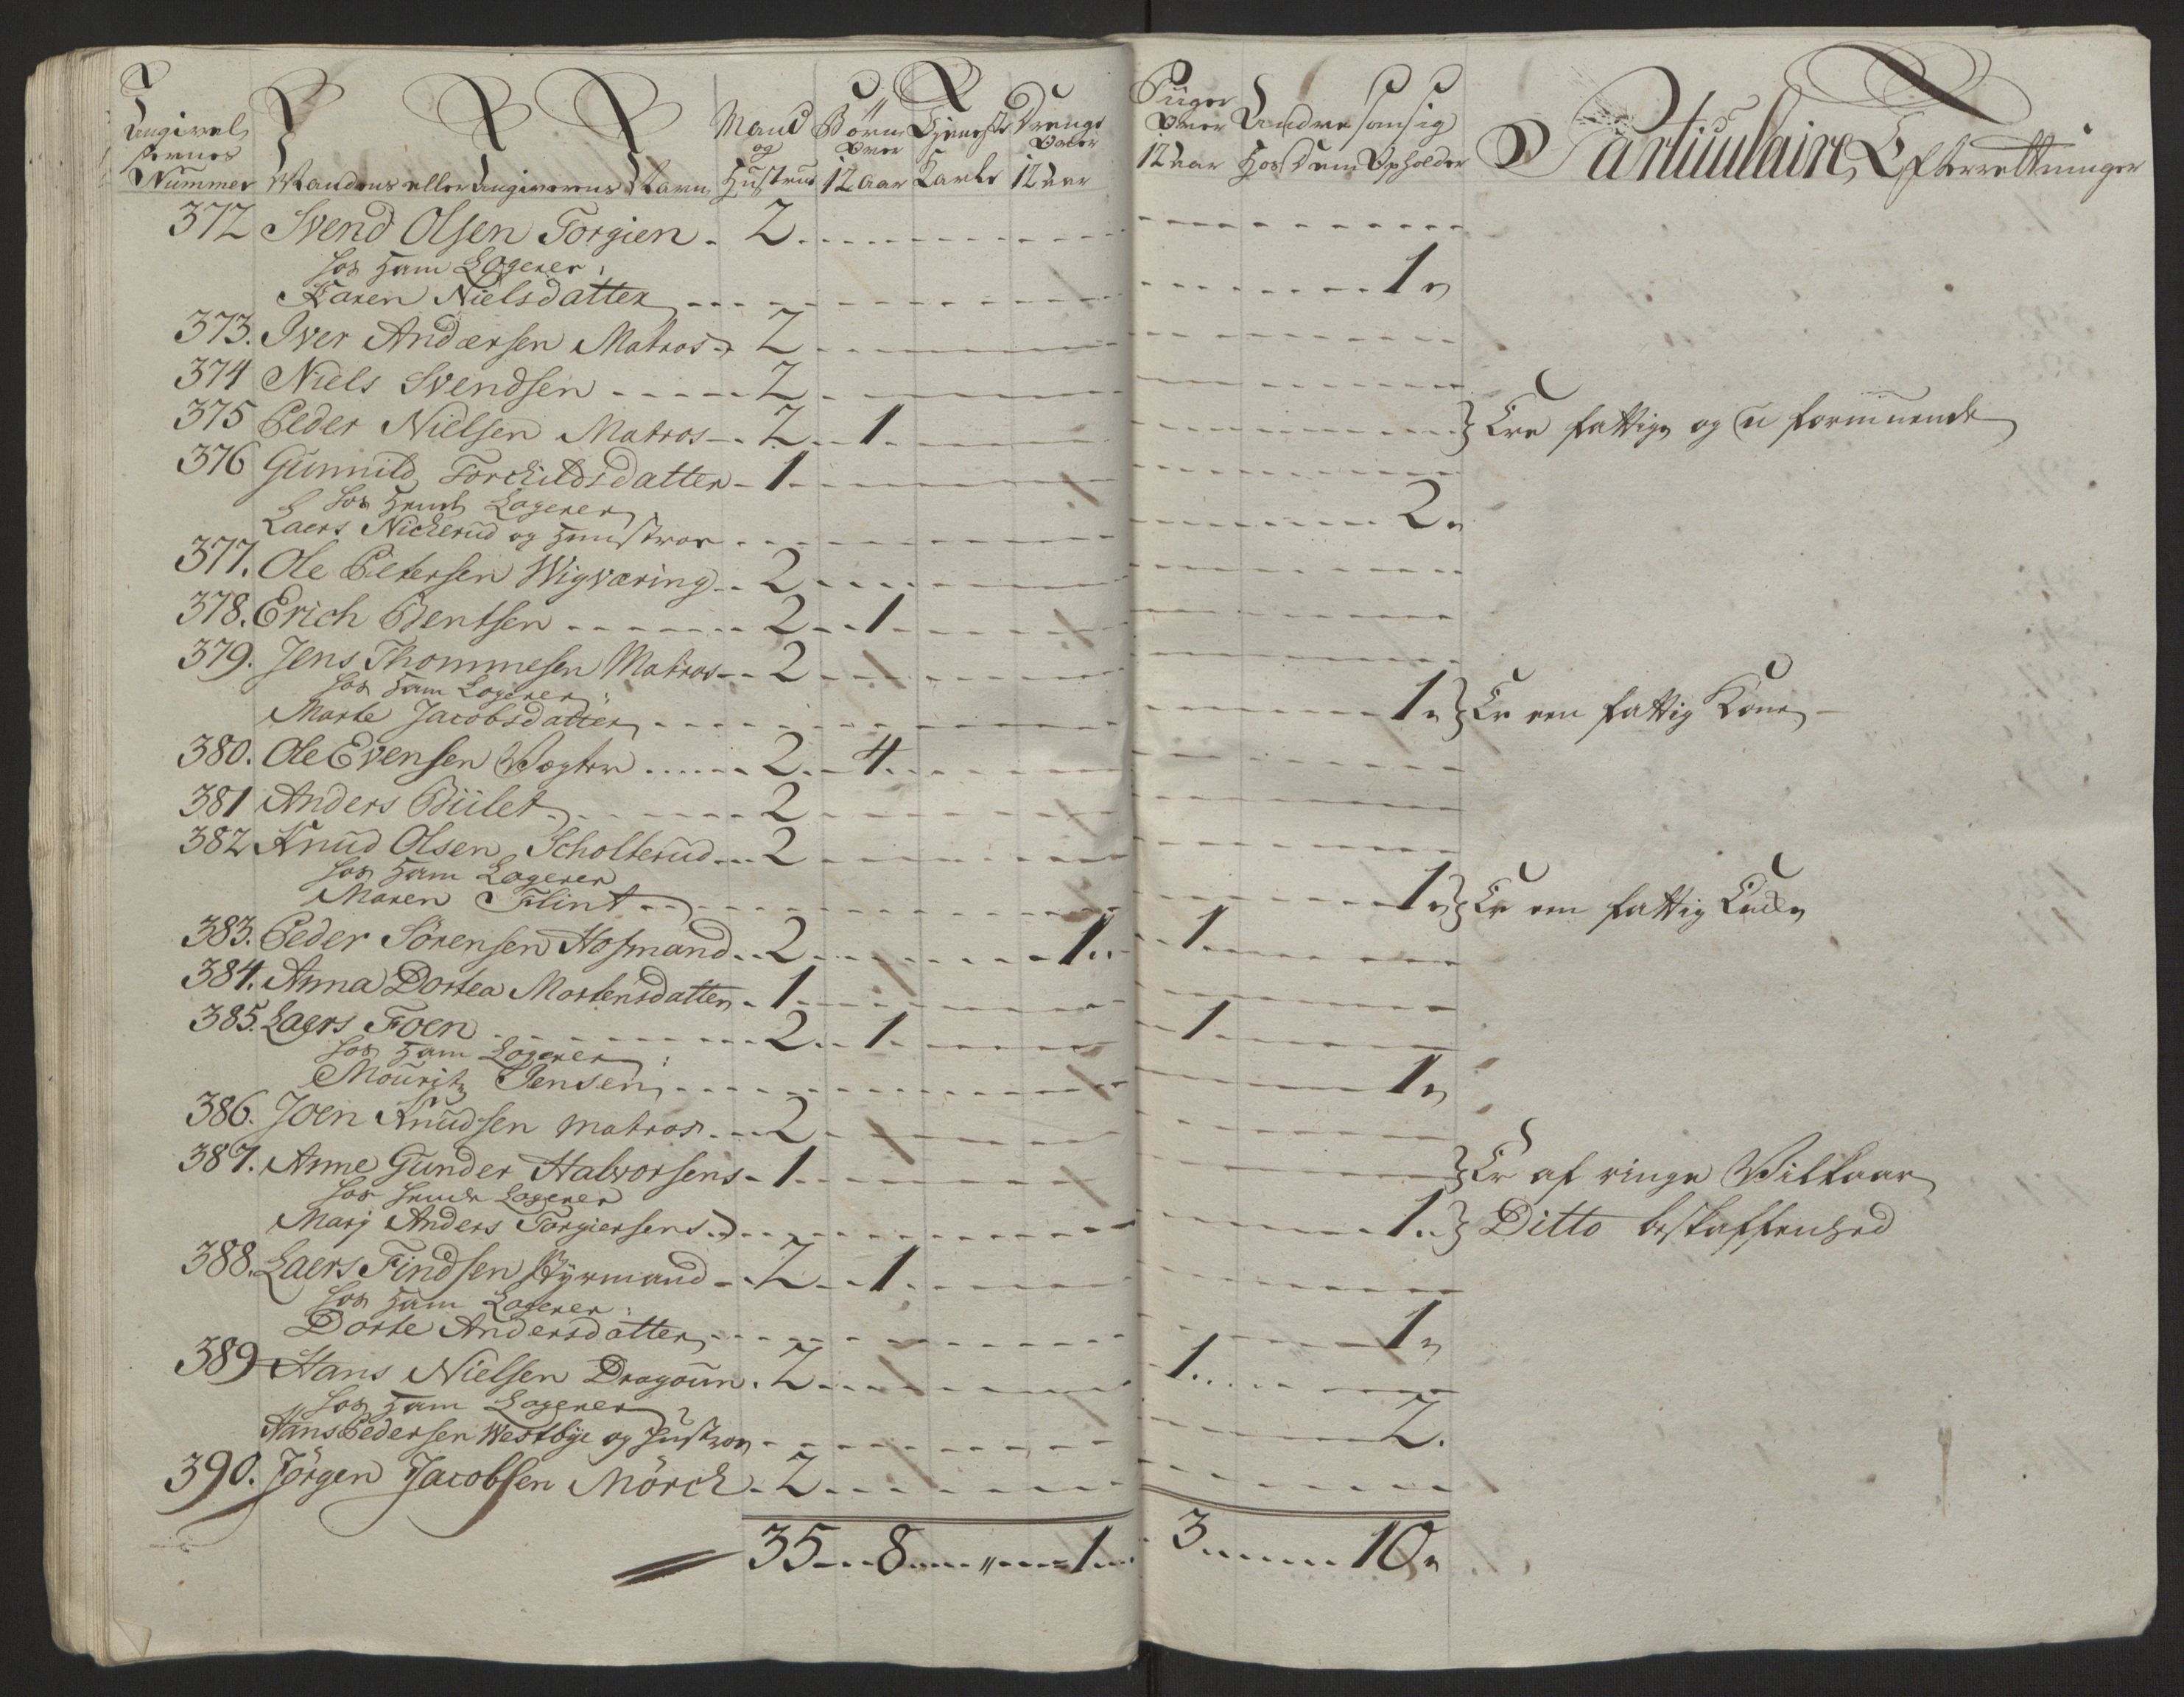 Angivel, fernes Nummer | Mandens eller Angiverens Navn | Mand og Hustrue | Börn over 12 Aar | Tjeneste Karle | Drenge over 12 Aar | Piiger over 12 Aar | Andre som sig hos dem opholder | Particulaire Efterrettninger
372 Svend Olsen Torgien . 2
hos ham Logerer,
Karen Nielsdatter 1
373. Iver Andærsen Matros 2
374 Niels Svendsen 2
375 Peder Nielsen Matros 2 1 } Ere fattige og u formuende
376 Gunnild Torchildsdatter 1
hos hende Logerer
Laers Nickerud og Hustroe 2
377. Ole Petersen Wigværing 2
378. Erich Bentsen 2 1
379. Jens Thommesen Matros 2
hos ham Logerer
Marte Jacobsdatter 1 } Er een fattig Kone
380. Ole Evensen Vægter 2 4
381 Anders Büilet 2
382 Knud Olsen Scholterud 2
hos ham Logerer
Maren Flint 1 } Er een fattig Enke
383. Peder Sörensen Hofmand 2 1 1
384. Anna Dortea Mortensdatter 1
385. Laers Foen 2 1 1
hos ham Logerer
Mouritz Jensen 1
386. Joen Knudsen Matros 2
387. Anne Gunder Halvorsens 1 } Er af ringe Vilkaar
hos hende Logerer
Marj Anders Torgiersens 1 } Ditto beskaffenhed
388. Laers Findsen Byrmand 2 1
hos ham Logerer
Dorte Andersdatter 1
389 Hans Nielsen Dragoun 2 1
hos ham Logerer
Hans Pedersen Westbye og Hustroe 2
390. Jörgen Jacobsen Mörch 2
35 8 " 1 3 10